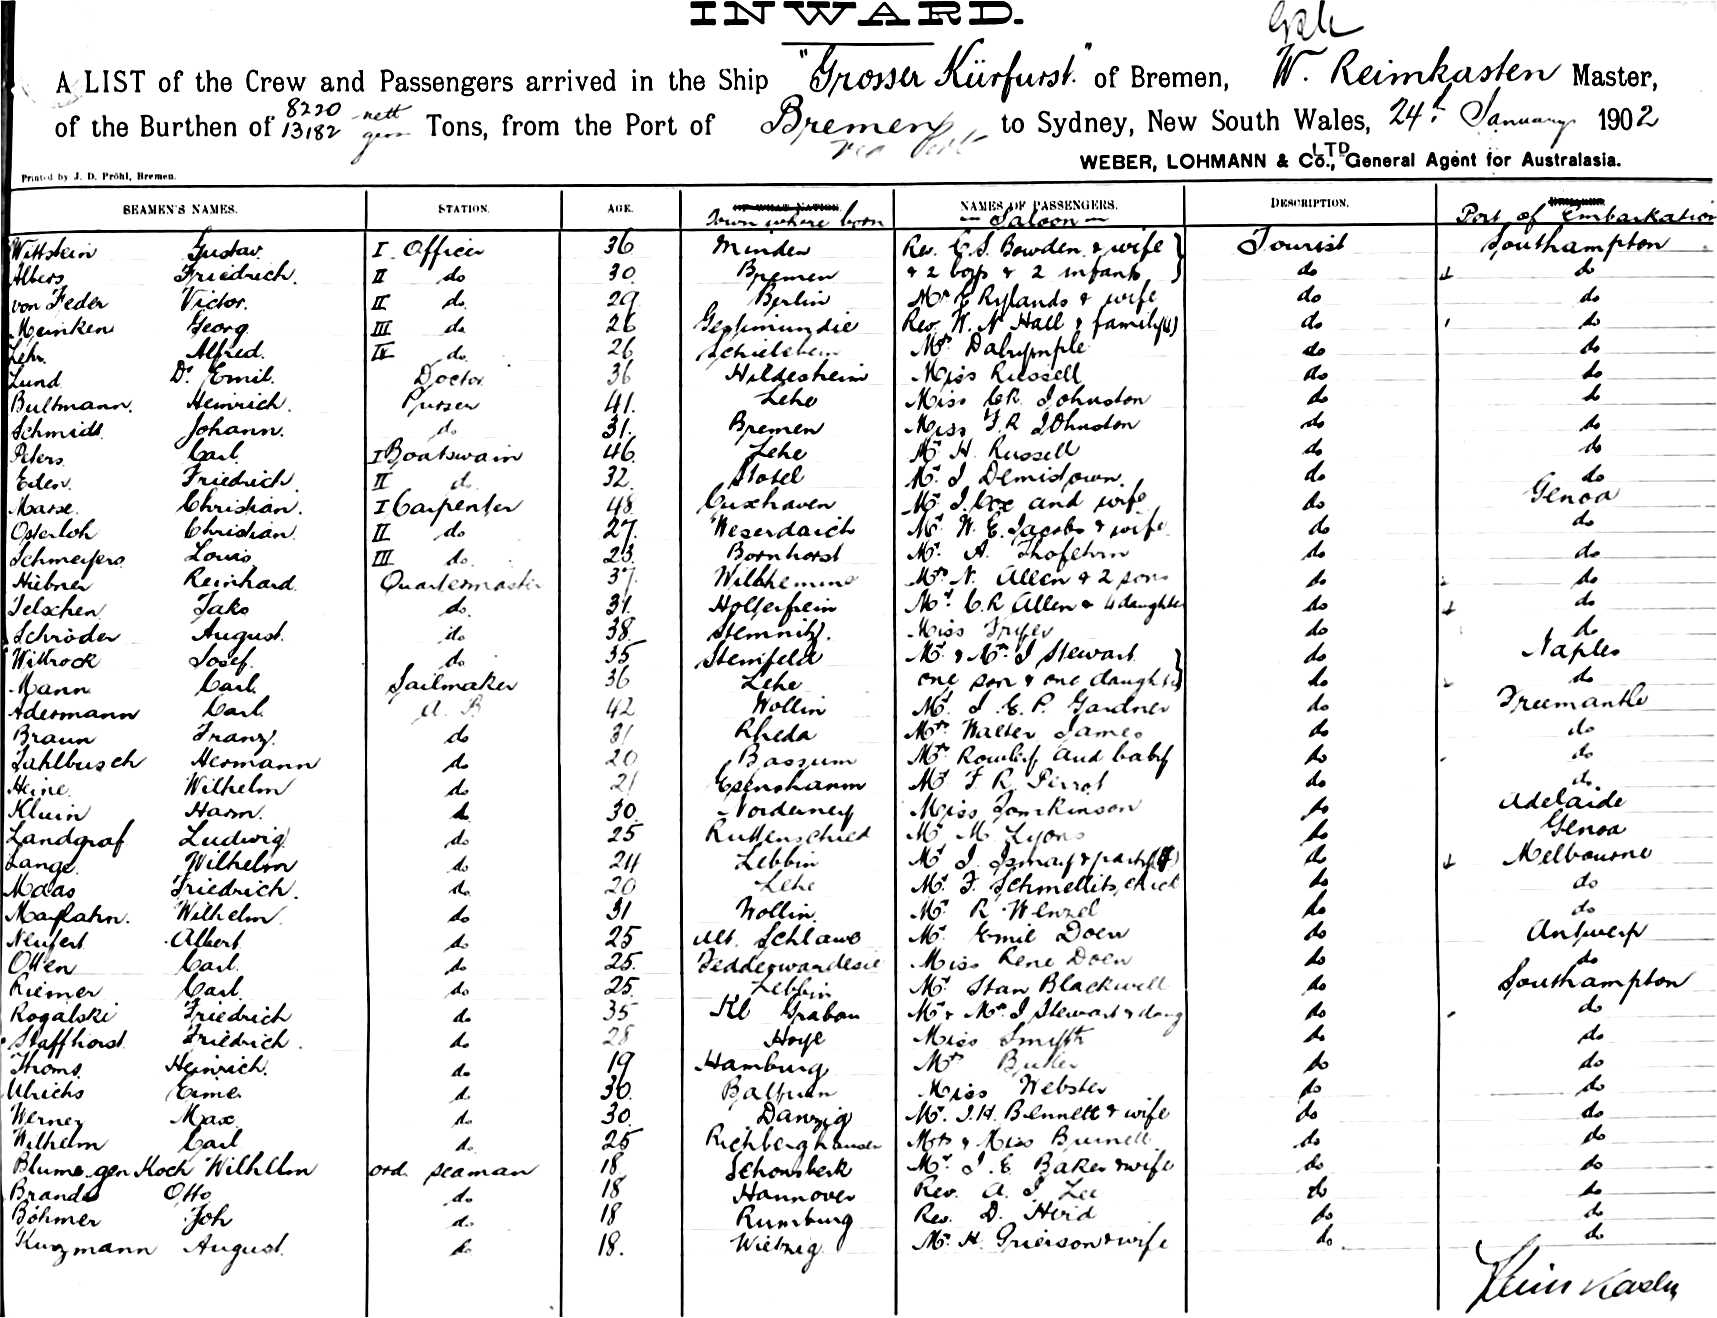 INWARD.
A LIST of the Crew and Passengers arrived in the Ship "Grosser Kürfurst." of Bremen, W. Reimkasten Master,
of the Burthen of 8220 nett 13182 Tons, from the Port of Bremen to Sydney, New South Wales, 24th January 1902
WEBER, LOHMANN & Co., LTD General Agent for Australasia.
Printed by J. D. Pröhl, Bremen.
SEAMEN'S NAMES. STATION. AGE. OF WHAT NATION Town where born NAMES OF PASSENGERS. Saloon DESCRIPTION. Port of Embarkation
Wittstein Gustav. I Officer 36 Minden Rev. C. S. Bowden & wife Tourist Southampton
Albers Friedrich. II do 30. Bremen & 2 boys & 2 infants do do
von Feder Victor. II do. 29 Berlin Mr E Rylands & wife do do
Meinken Georg III do. 26 Rev. W. N Hall & family (4) do do
Lehr Alfred. IV do. 26 Schielebein Mr. Dalrymple do do
Lund Dr. Emil. Doctor 36 Hildesheim Miss Russell do do
Bultmann. Heinrich. Purser 41. Lehe Miss C R. Johnston do do
Schmidt Johann. do 31. Bremen Miss F. R Johnston do do
Peters Carl. I Boatswain 46. Lehe Mr. H. Russell do do
Eden. Friedrich. II d. 32. Stotel Mr. J Demistown. do do
Marse. Christian. I Carpenter 48. Cuxhaven Mr. J. Cox and wife do Genoa
Osterloh Christian. II do 27. Weserdeich Mr. W. E. Jacobs & wife do do
Schmeifers Louis III do. 23. Bornhorst Mr. A. do do
Hübner Reinhard. Quartermaster 37. Mrs N. Allen & 2 sons do do
Jelschen Jako do. 31. Mr. C. R Allen & 4 daughters do do
Schröder August. do 38. Stemnitz. Miss Fryer do do
Wittrock Josef. do 35 Steinfeld Mr. & Mrs. J Stewart do Naples
Mann Carl. Sailmaker 36 Lehe one son & one daughter do do
Adermann Carl. A. B 42 Wollin Mr. J. E. P. Gardner do Freemantle
Braun Franz. do 31 Rheda Mrs Walter James do do
Fahlbusch Hermann do 20 Bassum Mrs. and baby do do
Heine. Wilhelm do 21 Esenshamm Mr. F. R. Perrot do do
Kluin Harm. do 30. Norderney Miss Tomkinson do Adelaide
Landgraf Ludwig. do 25 Mr. M. Lyons do Genoa
Lange. Wilhelm do 24 Lebbin Mr. J. Ismay & party do Melbourne
Maas Friedrich. do 20 Lehe Mr. F. do do
Wilhelm. do 31 Wollin. Mr. R. Wenzel do do
Neufert Albert do 25 Alt. Schlawe Mr. Emil Doen do Antwerp
Otten Carl. do 25. Miss Rene Doen do do
Riemer Carl do 25. Lebbin Mr. Stan Blackwell do Southampton
Rogalski Friedrich do 35 Kl Grabow Mr & Mrs. J Stewart & daug do do
Staffhorst Friedrich. do 28 Hoye Miss Smyth do do
Thoms. Heinrich. do 19 Hamburg Mrs Butler do do
Ulrichs do 30. Baltrum Miss Webster do do
Werner Max do 30. Danzig Mr. J. H. Bennett & wife do do
Wilhelm Carl do. 25 Mrs & Miss Burnell do do
Blume gen Koch Wilhelm ord. seaman 18. Mr. J. E. Baker & wife do do
Brandes Otto do. 18 Hannover Rev. A. J. Lee do do
Böhmer Joh do 18 Rumburg Rev. D. do do
Kunzmann August. do 18. Wietzig Mr. H. Grierson & wife do do
Reimkasten